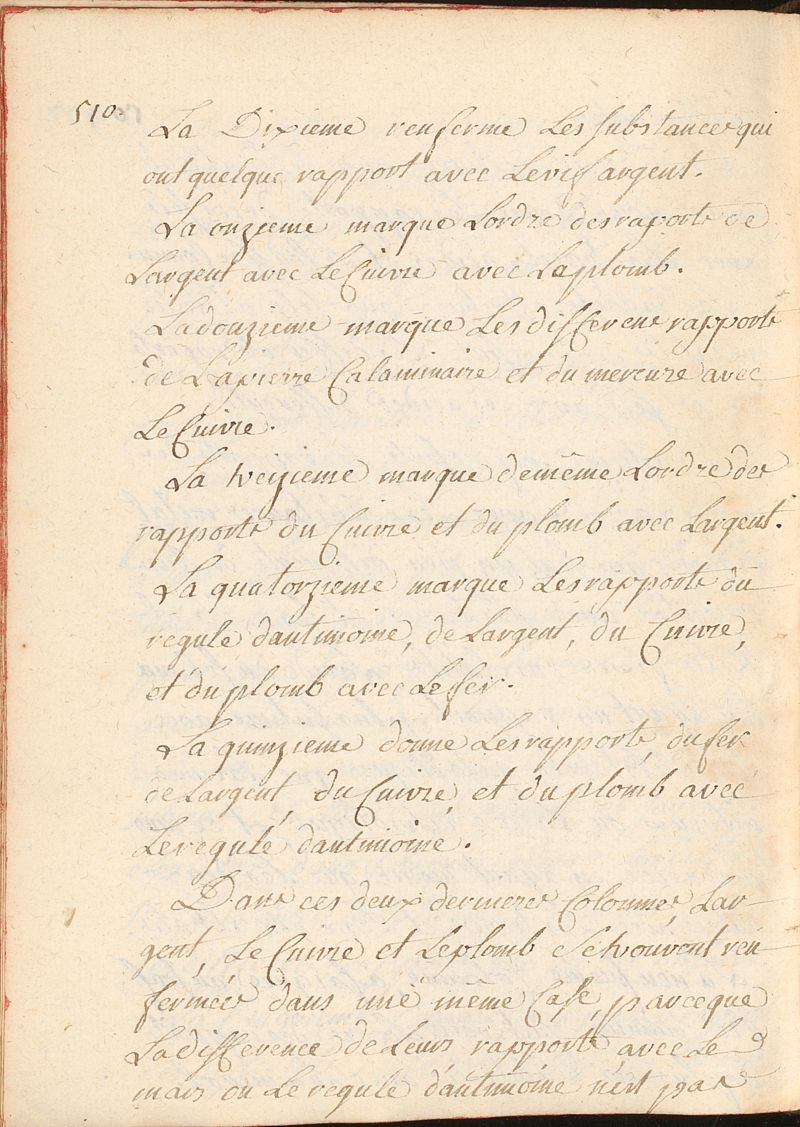 510
La Dixieme renferme Les substances qui
ont quelque rapport avec Le vif argent.
La onzieme marque Lordre des raports de
Largent avec Le Cuivre avec La plomb.
La douzieme marque Les differens rapports
de La pierre Calaminaire et du mercure avec
Le Cuivre.
La treizieme marque de même Lordre des
rapports du Cuivre et du plomb avec Largent.
La quatorzieme marque Les rapports du
regule dantimoine, de Largent, du Cuivre,
et du plomb avec Le fer.
La quinzieme donne Les rapports du fer
de Largent, du Cuivre, et du plomb avec
Le regule dantimoine.
Dans ces deux dernieres Colonnes, Lar-
gent, Le Cuivre et Le plomb se trouvent ren
fermées dans une même Case, parceque
La difference de Leurs rapports avec Le
mars ou Le regule d'antimoine n'est pas